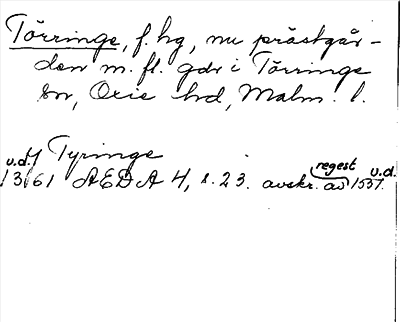 Törringe, f. hg, nu prästgår-
den m. fl. gdr i Törringe
sn, Oxie hd, Malm. l.
u.d. Tyringe
1361 AEDA 4, s. 23. avskr. av regest 1537. u.d.